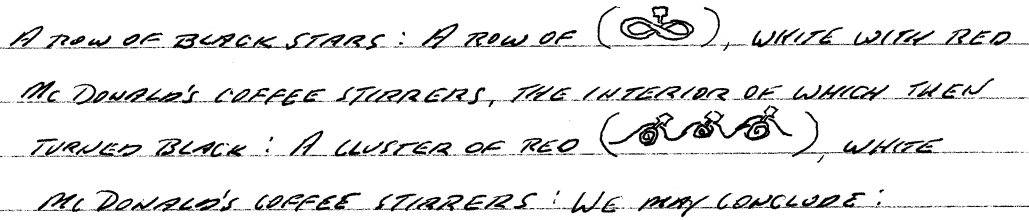 A ROW OF BLACK STARS : A ROW OF ( ), WHITE WITH RED
MC DONALD'S COFFEE STIRRERS, THE INTERIOR OF WHICH THEN
TURNED BLACK : A CLUSTER OF RED ( ), WHITE
MC DONALD'S COFFEE STIRRERS : WE MAY CONCLUDE :